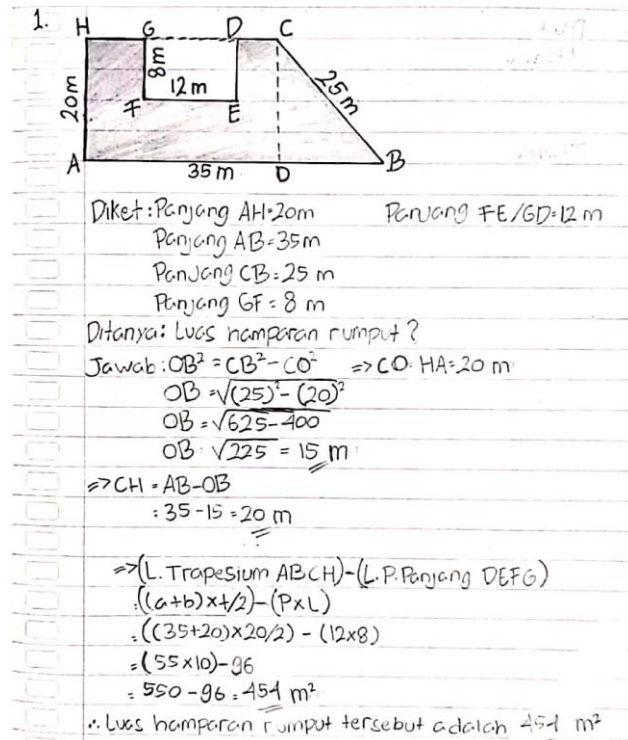 1.
H G D C
8m
12m
25m
20m
F E
A 35m O B
Diket: Panjang AH=20m Panjang FE/GD=12 m
Panjang AB=35m
Panjang CB=25 m
Panjang GF= 8 m
Ditanya: Luas hamparan rumput?
Jawab: OB² = CB² - CO² => CO=HA=20 m
OB = √(25)² - (20)²
OB = √625-400
OB = √225 = 15 m
=> CH = AB-OB
= 35-15 = 20 m
=> (L. Trapesium ABCH)-(L.P.Panjang DEFG)
= ((a+b)×t/2)-(P×L)
= ((35+20)×20/2) - (12×8)
= (55×10)-96
= 550-96 = 454 m²
∴ Luas hamparan rumput tersebut adalah 454 m²